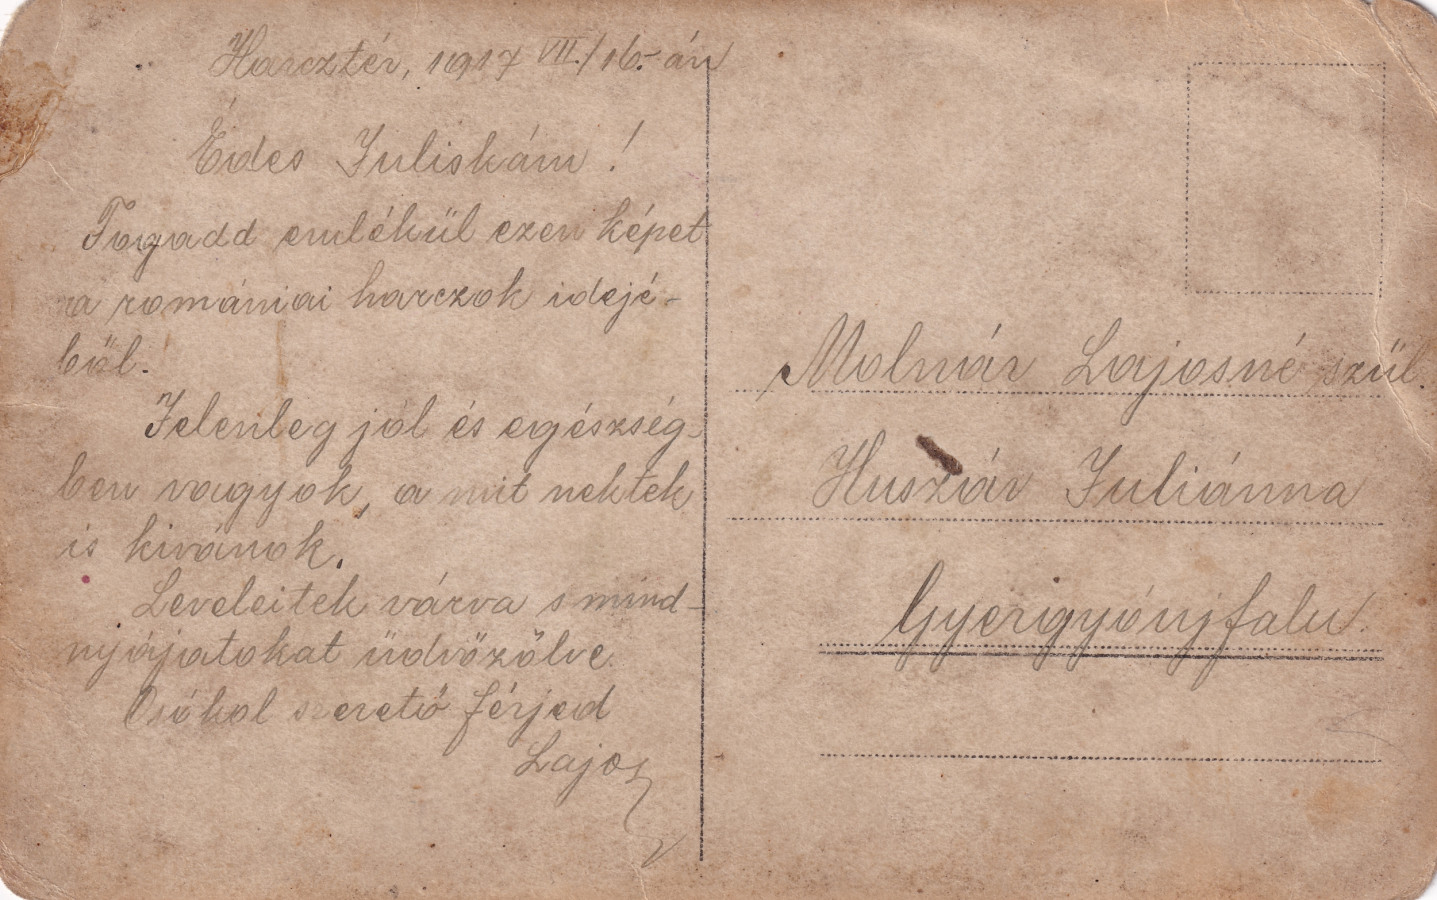 Harcztér, 1917 VII./16.-án
Édes Juliskám!
Fogadd emlékül ezen képet
a romániai harczok idejé-
ből.
Jelenleg jól és egészség-
ben vagyok, a mit nektek
is kivánok.
Leveleitek várva s mind-
nyájatokat üdvözölve
Csókol szerető férjed
Lajos
Molnár Lajosné szül.
Huszár Juliánna
Gyergyóujfalu.